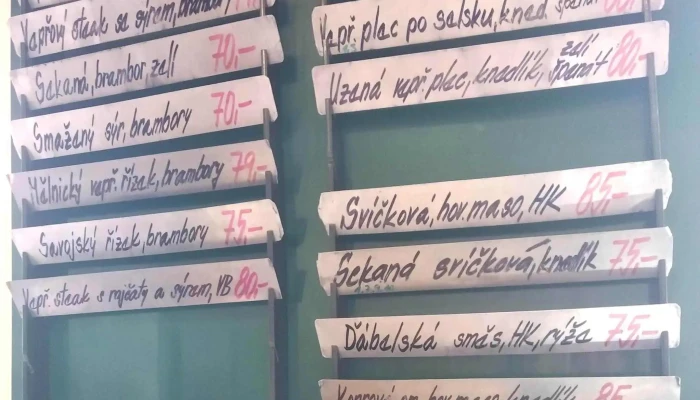 Vepřový steak se sýrem, brambory
Sekaná, brambor, zelí 70,-
Smažený sýr, brambory 70,-
Mělnický vepř. řízek, brambory 79,-
Savojský řízek, brambory 75,-
Vepř. steak s rajčaty a sýrem, VB 80,-
Vepř. plec po selsku, knedl. špenát 80,-
Uzená vepř. plec, knedlík, zelí špenát 80,-
Svíčková, hov. maso, HK 85,-
Sekaná svíčková, knedlík 75,-
Ďábelská směs, HK, rýže 75,-
Koprová om. hov. maso, knedlík 85,-